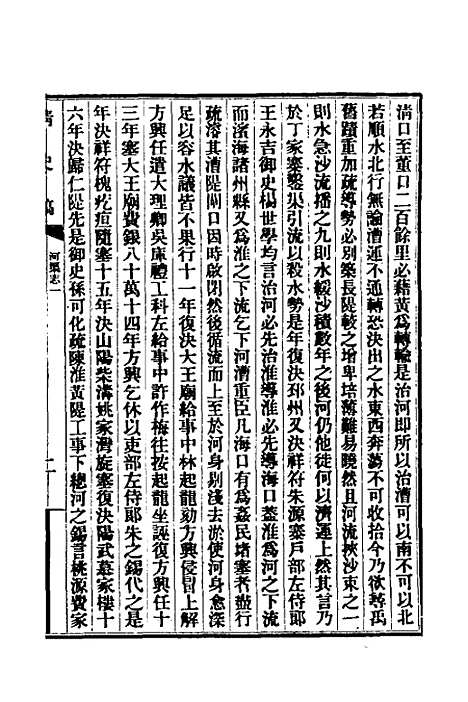 清口至董口二百餘里必藉黃爲轉輸是治河即所以治漕可以南不可以北
若順水北行無論漕運不通轉恐決出之水東西奔蕩不可收拾今乃欲尋禹
舊蹟重加疏導勢必別築長隄較之增卑培薄難易曉然且河流挾沙束之一
則水急沙流播之九則水緩沙積數年之後河仍他徙何以濟運上然其言乃
於丁家寨鑿渠引流以殺水勢是年復決邳州又決祥符朱源寨戶部左侍郎
王永吉御史楊世學均言治河必先治淮導淮必先導海口蓋淮爲河之下流
而濱海諸州縣又爲淮之下流乞下河漕重臣凡海口有爲姦民堵塞者盡行
疏濬其漕隄閘口因時啟閉然後循流而上至於河身剔淺去淤使河身愈深
足以容水議皆不果行十一年復決大王廟給事中林起龍劾方興侵冒上解
方興任遣大理卿吳庫禮工科左給事中許作梅往按起龍坐誣復方興任十
三年塞大王廟費銀八十萬十四年方興乞休以吏部左侍郎朱之錫代之是
年決祥符槐疙疸隨塞十五年決山陽柴溝姚家灣旋塞復決陽武慕家樓十
六年決歸仁隄先是御史孫可化疏陳淮黃隄工事下總河之錫言桃源費家
清史稿
河渠志一
二